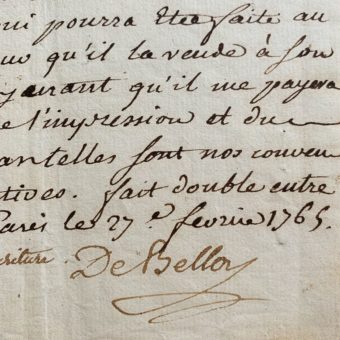 qui pourra Etre faite au
qu'il la vende à son
qu'il me payera
de l'impression et du
telles sont nos conven
tives. fait double entre
Paris le 27.e fevrie 1765.
criture. De Belloy